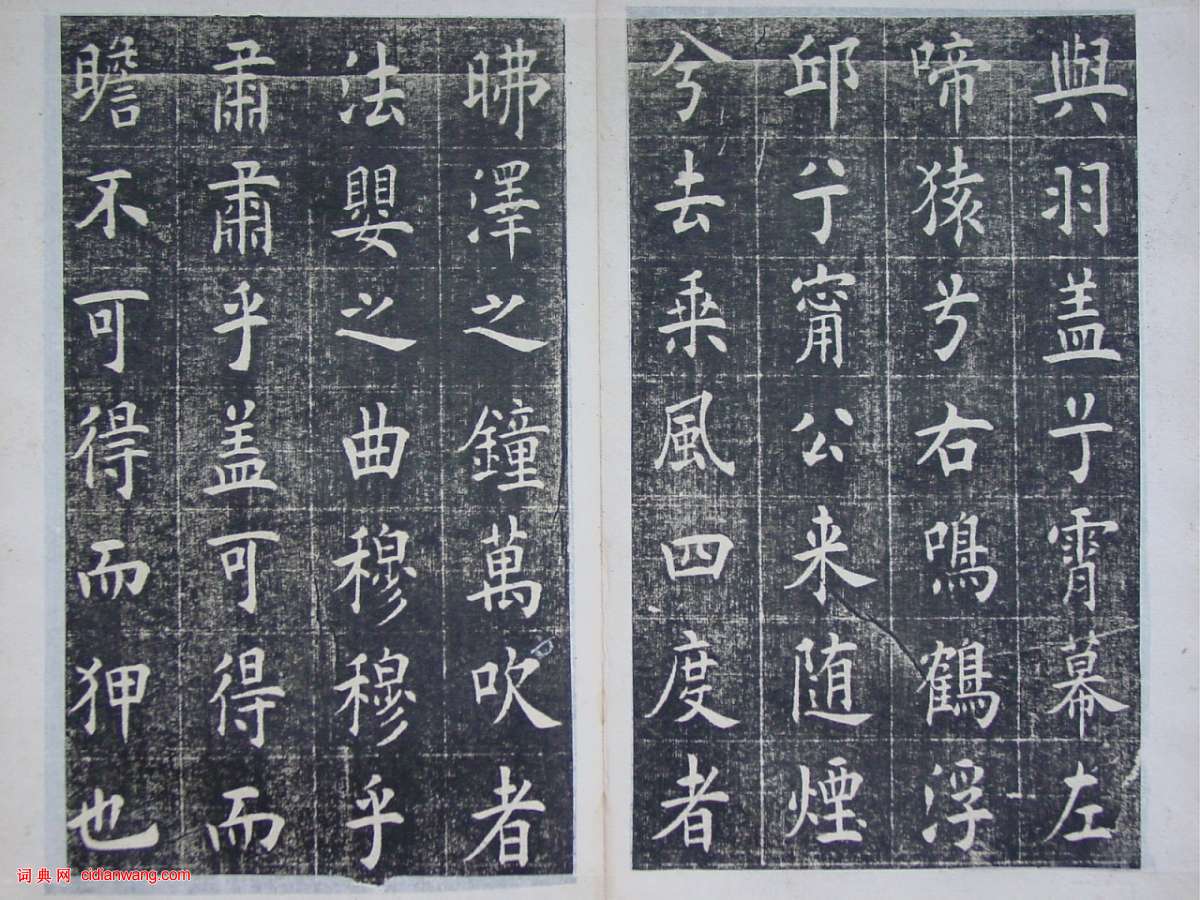 與羽盖兮霄幕左
啼猿兮右鳴鶴浮
邱兮甯公来随煙
兮去乗風四度者
昲澤之鐘萬吹者
法嬰之曲穆穆乎
肅肅乎盖可得而
瞻不可得而狎也
词典网 cidianwang.com